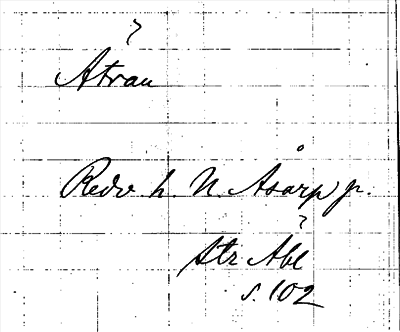 Ätran
Redv. h. N. Åsarp p.
str Äbl
s. 102